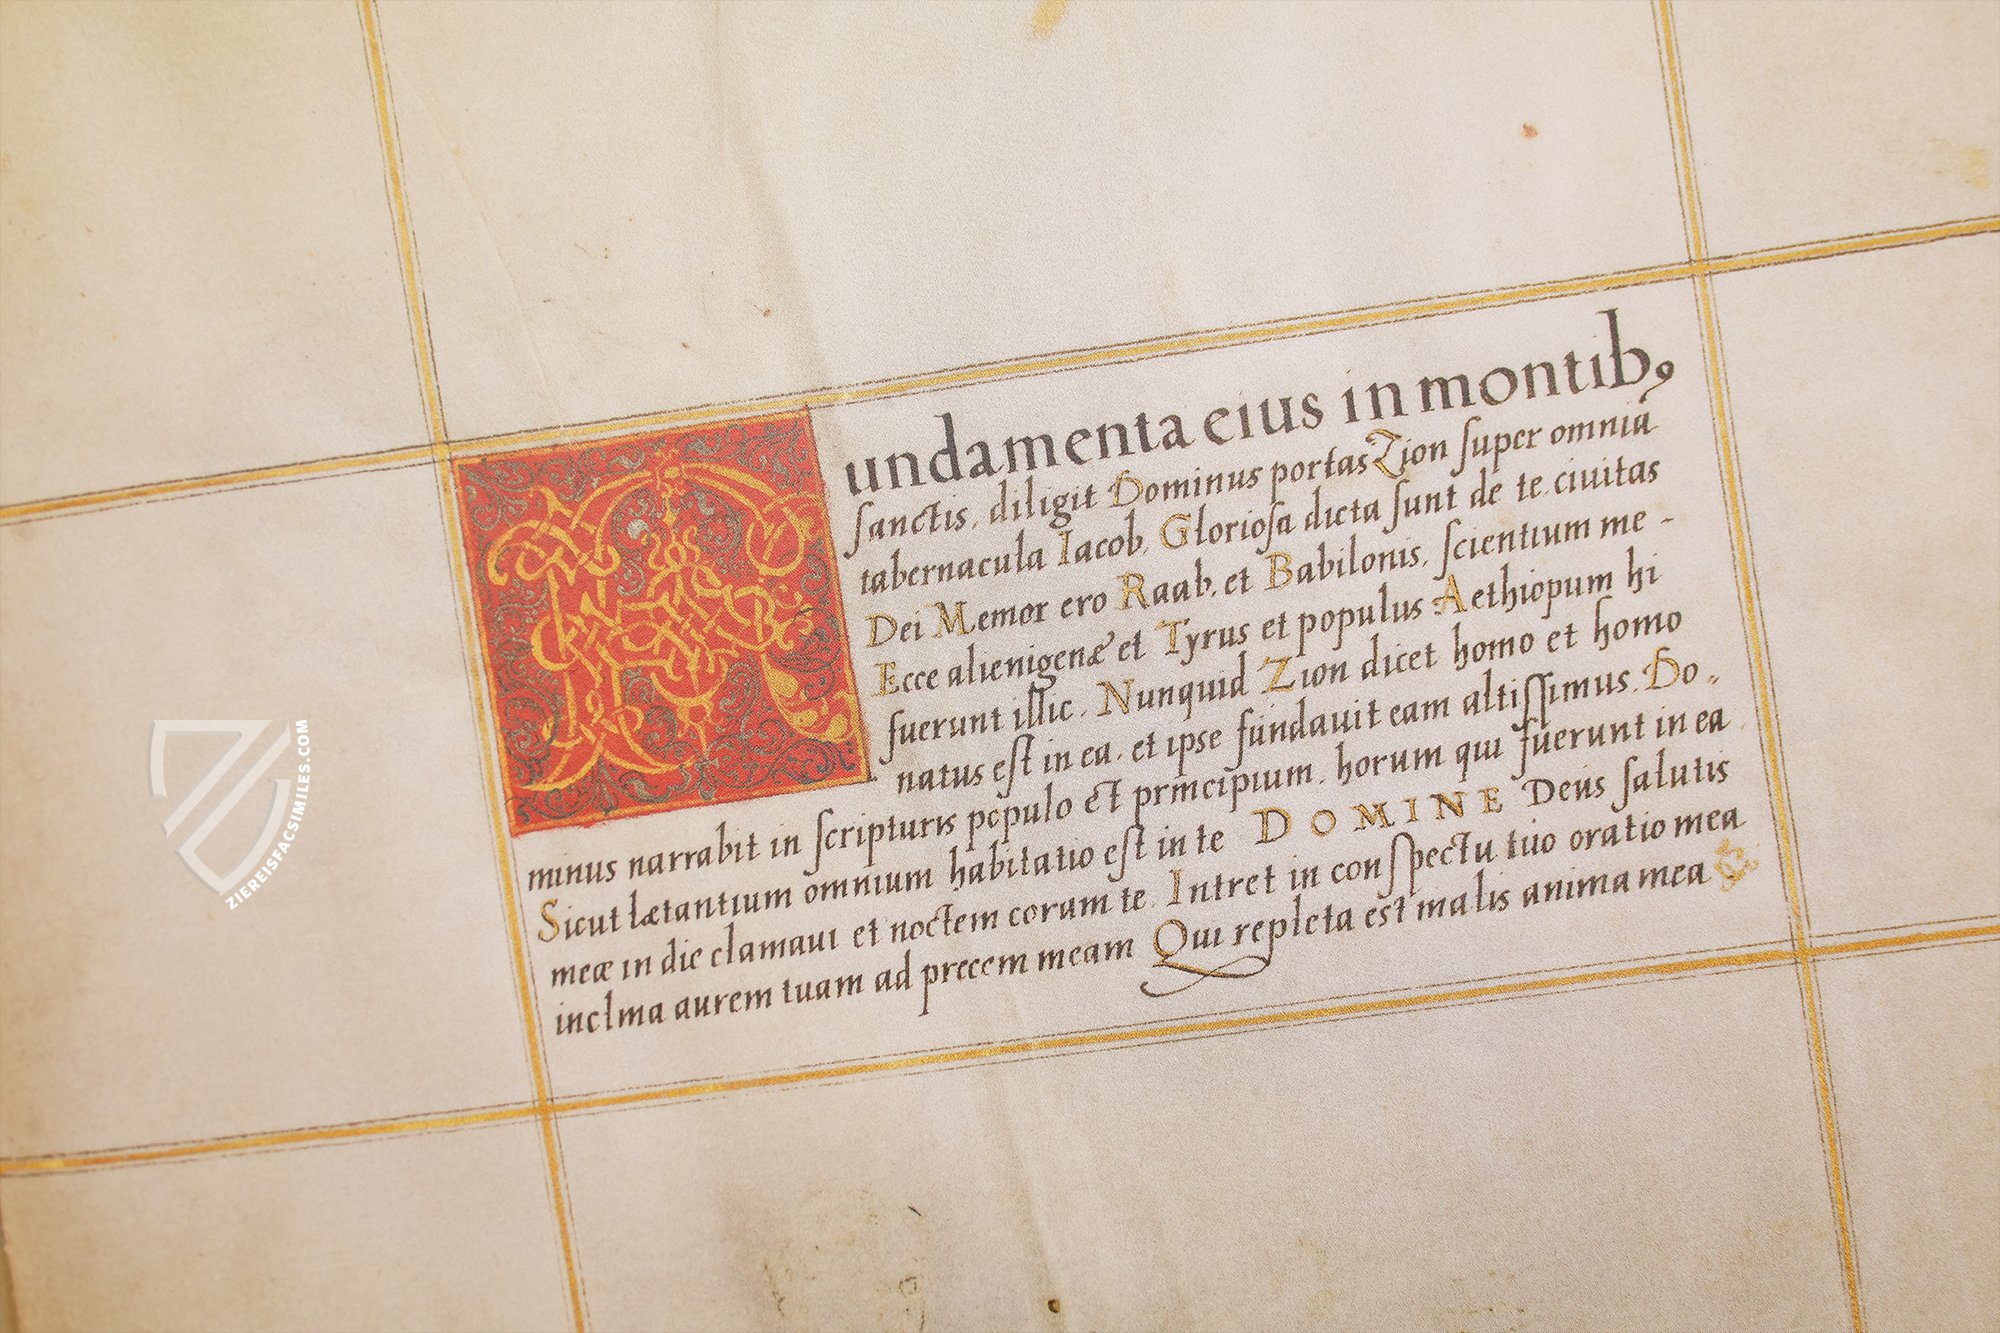 Fundamenta eius in montibꝯ
sanctis, diligit Dominus portas Zion super omnia
tabernacula Iacob, Gloriosa dicta sunt de te, ciuitas
Dei Memor ero Raab, et Babilonis, scientium me -
Ecce alienigenæ et Tyrus et populus Aethiopum hi
fuerunt illic, Nunquid Zion dicet homo et homo
natus est in ea, et ipse fundauit eam altissimus, Do„
minus narrabit in scripturis populo et principium, horum qui fuerunt in ea
Sicut lætantium omnium habitatio est in te DOMINE Deus salutis
meæ in die clamaui et noctem coram te, Intret in conspectu tuo oratio mea
inclina aurem tuam ad precem meam Qui repleta est malis anima mea
ZIEREISFACSIMILES.COM